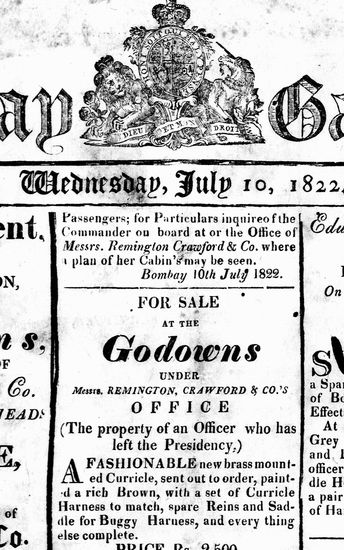 DIEU ET MON DROIT
ay Ga
Wednesday, July 10, 1822,
ent,
ON,
ns,
OF
Co.
HEADS
E,
of
Co.
Passengers; for Particulars inquire of the
Commander on board at or the Office of
Messrs. Remington Crawford & Co. where
a plan of her Cabin's may be seen.
Bombay 10th July 1822.
FOR SALE
AT THE
Godowns
UNDER
Messrs. REMINGTON, CRAWFORD & CO.'S
OFFICE
(The property of an Officer who has
left the Presidency,)
A FASHIONABLE new brass mount-
ed Curricle, sent out to order, paint-
d a rich Brown, with a set of Curricle
Harness to match, spare Reins and Sad-
dle for Buggy Harness, and every thing
else complete.
PRICE Rs. 2,500
Edu
On
SW
a Span
of Bo
Effect
At
Grey
and
officer
dle H
a pair
of Ha